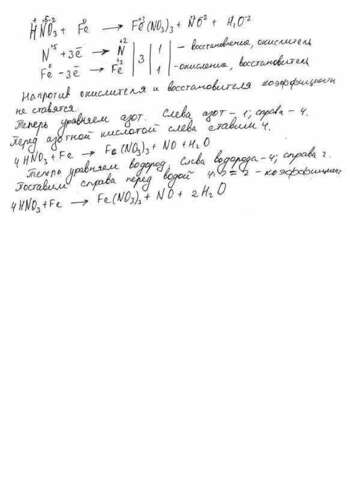 HNO₃ + Fe⁰ → Fe⁺³(NO₃)₃ + N⁺²O⁻² + H₂O⁻²
N⁺⁵ + 3e̅ → N⁺² | 3 | 1 | - восстановление, окислитель
Fe⁰ - 3e̅ → Fe⁺³ | | 1 | - окисление, восстановитель
Напротив окислителя и восстановителя коэффициен
не ставятся.
Теперь уравняем азот. Слева азот - 1; справа - 4.
Перед азотной кислотой слева ставим 4.
4HNO₃ + Fe → Fe(NO₃)₃ + NO + H₂O
Теперь уравняем водород, слева водорода - 4; справа 2.
Поставим справа перед водой 4:2 = 2 - коэффициен
4HNO₃ + Fe → Fe(NO₃)₃ + NO + 2H₂O